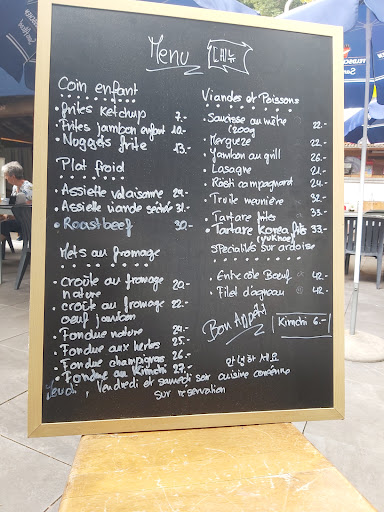 Menu 메뉴
Coin enfant
frites Ketchup 7.-
Frites jambon enfant 10.-
Nuggets frite 13.-
Plat froid
Assiette valaisanne 29.-
Assiette viande seichée 31.-
Roastbeef 30.-
Mets au fromage
croûte au fromage nature 20.-
croûte au fromage oeuf jambon 22.-
Fondue nature 24.-
Fondue aux herbes 25.-
Fondue champignons 26.-
Fondue au Kimchi 27.-
Viandes et Poissons
Saucisse au mètre 22.-
(200g)
Mergueze 22.-
Jambon au grill 26.-
Lasagne 21.-
Rösti campagnard 24.-
Truite meunière 32.-
Tartare frites 33.-
Tartare Korea frites 33.-
(Yukhoe)
Spécialités sur ardoise
Entrecôte Boeuf 42.-
Filet d'agneau 42.-
Bon Appétit
Kimchi 6.-
안녕하세요
Jeudi, Vendredi et samedi soir cuisine coréenne
sur réservation